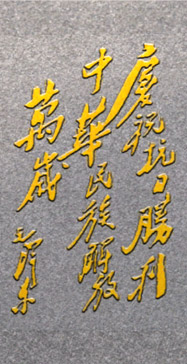 慶祝抗日勝利
中華民族解放
萬歲
毛澤東